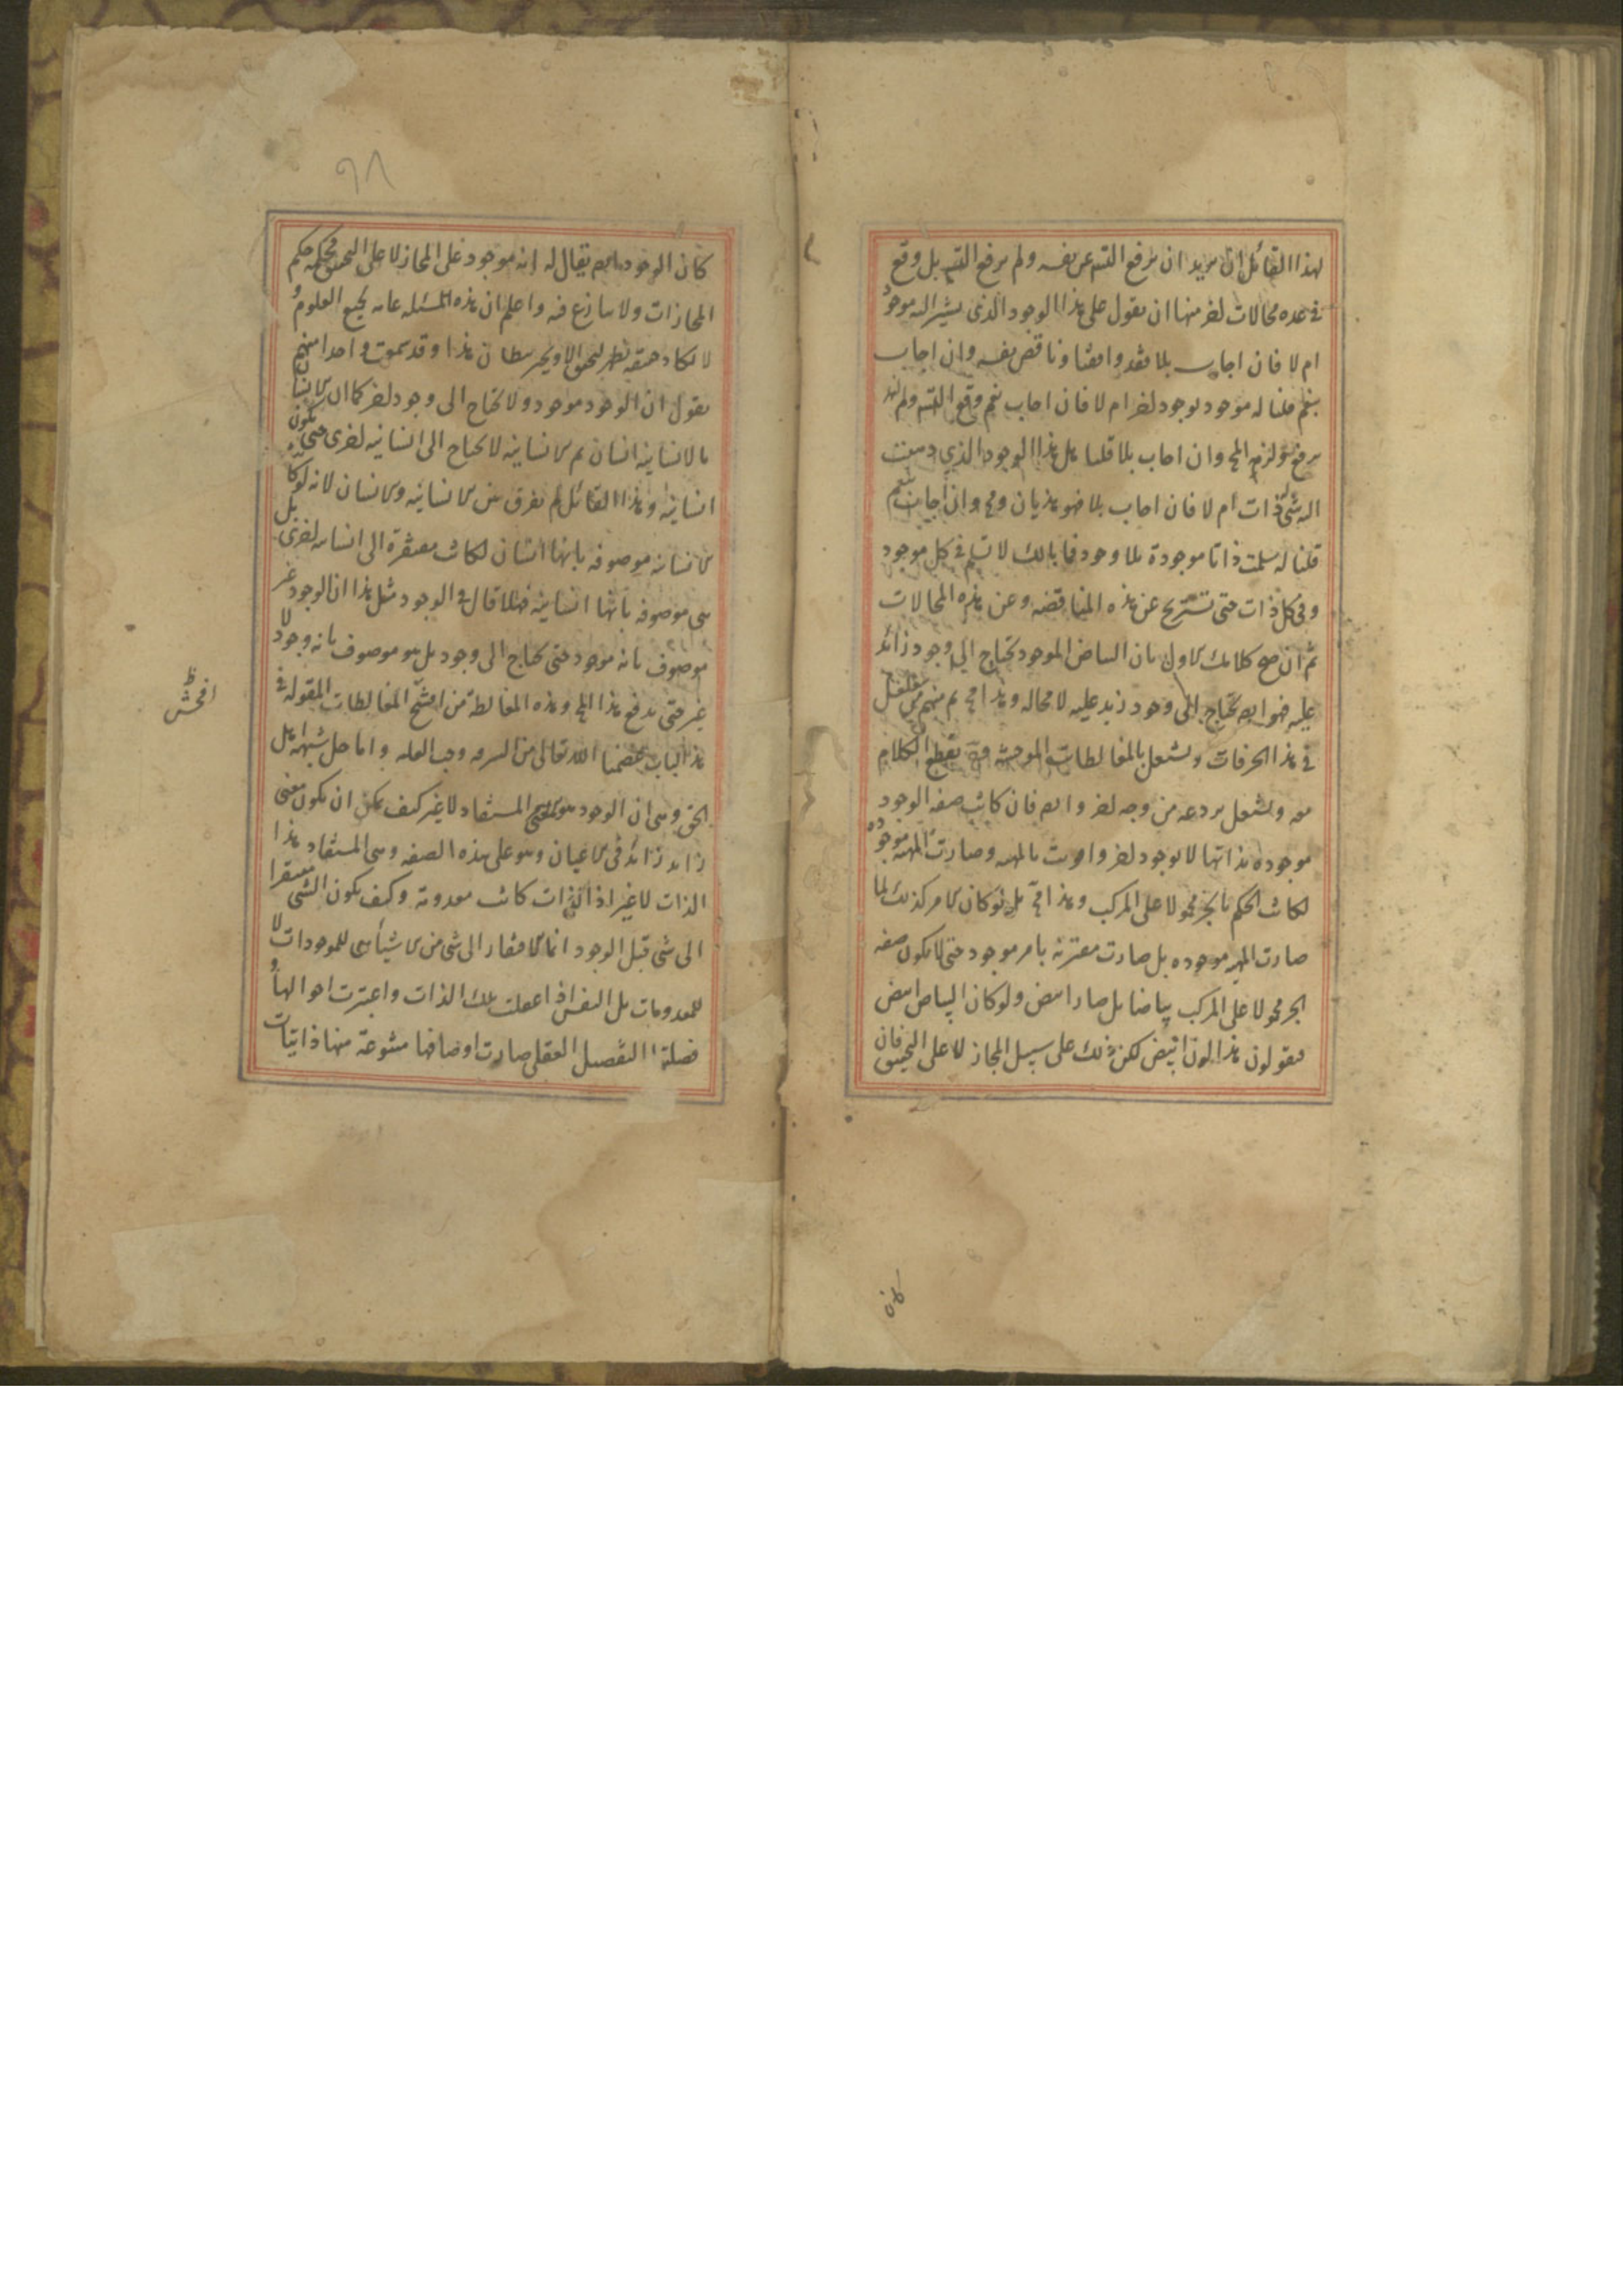 لهذا القائل ان يريد ان يرفع التسم عن نفسه ولم يرفع التسم بل وقع
في عده محالات لخر منها ان يقول هل هذا الوجود الذى يشير اليه موجود
ام لا فان اجاب بلا فقد وافقنا وناقض نفسه وان اجاب
بنعم قلنا له موجود بوجود لخر ام لا فان اجاب بنعم وقع التسم ولم
يرفع ولزم المح وان اجاب بلا قلنا هل هذا الوجود الذي
الشى ذات ام لا فان اجاب بلا فهو هذيان ومح وان اجاب بنعم
قلنا له سلمت ذاتا موجودة بلا وجود فما بالك لا تسلم في كل موجود
وفي كل ذات حتى تستريح عن هذه المناقضه وعن هذه المحالات
ثم ان صح كلامك الاول بان البياض الموجود يحتاج الى وجود زائد
عليه فهو ايم يحتاج الى وجود زيد عليه لا محاله وهذا مح ثم منهم من
في هذا الخرفات ويشتغل بالمغالطات الموحشه يقطع الكلام
معه ويشتغل بردعه من وجه لخر وايم فان كانت صفه الوجود
موجوده بذاتها لا بوجود لخر واقترنت بالمهيه وصارت المهيه موجوده
لكانت الحكم بالجزء محمولا على المركب وهذا مح بل لو كان الامر كذلك لما
صارت المهيه موجوده بل صارت مقترنه بامر موجود حتى لا يكون صفه
الجزء محمولا على المركب بياضا بل صار ابيض ولو كان البياض ابيض
فيقولون هذا لون ابيض لكن ذلك على سبيل المجاز لا على التحقيق فان
كان
٩٨
كان الوجود ايم يقال له انه موجود على المجاز لا على التحقيق حكم
المجازات ولا ينازع فيه واعلم ان هذه المسئله عامه لجميع العلوم و
لا تكاد هذا وقد سمعت واحدا منهم
يقول ان الوجود موجود ولا يحتاج الى وجود لخر كما ان الانسان
بالانسانيه انسان ثم الانسانيه لا يحتاج الى انسانيه لخرى حتى يكون
انسانيه وهذا القائل لم يفرق بين الانسانيه والانسان لانه لو كانت
الانسانيه موصوفه بانها انسان لكانت مفتقرة الى انسانيه لخرى بل
هى موصوفه بانها انسانيه فهلا قال في الوجود مثل هذا ان الوجود غير
موصوف بانه موجود حتى يحتاج الى وجود بل هو موصوف بانه وجود لا
غير حتى يدفع هذا المح وهذه المغالطة من اقبح المغالطات المقوله في
هذا الباب عصمنا الله تعالى من الشره وحب الغلبه واما حل شبهه اهل
الحق وهى ان الوجود هو معنى المستفاد لا غير كيف يمكن ان يكون معنى
زايد زائد في الاعيان وهو على هذه الصفه وهى المستفاد هذا
الذات لا غير اذ الذات كانت معدومة وكيف يكون الشى مفتقرا
الى شى قبل الوجود انما الافتقار الى شى من الاشيأ هى للموجودات لا
للمعدومات بل النفس اذا عقلت تلك الذات واعتبرت احوالها و
فصلتها التفصيل العقلى صارت اوصافها متنوعة منها ذاتيات
افحش ظ